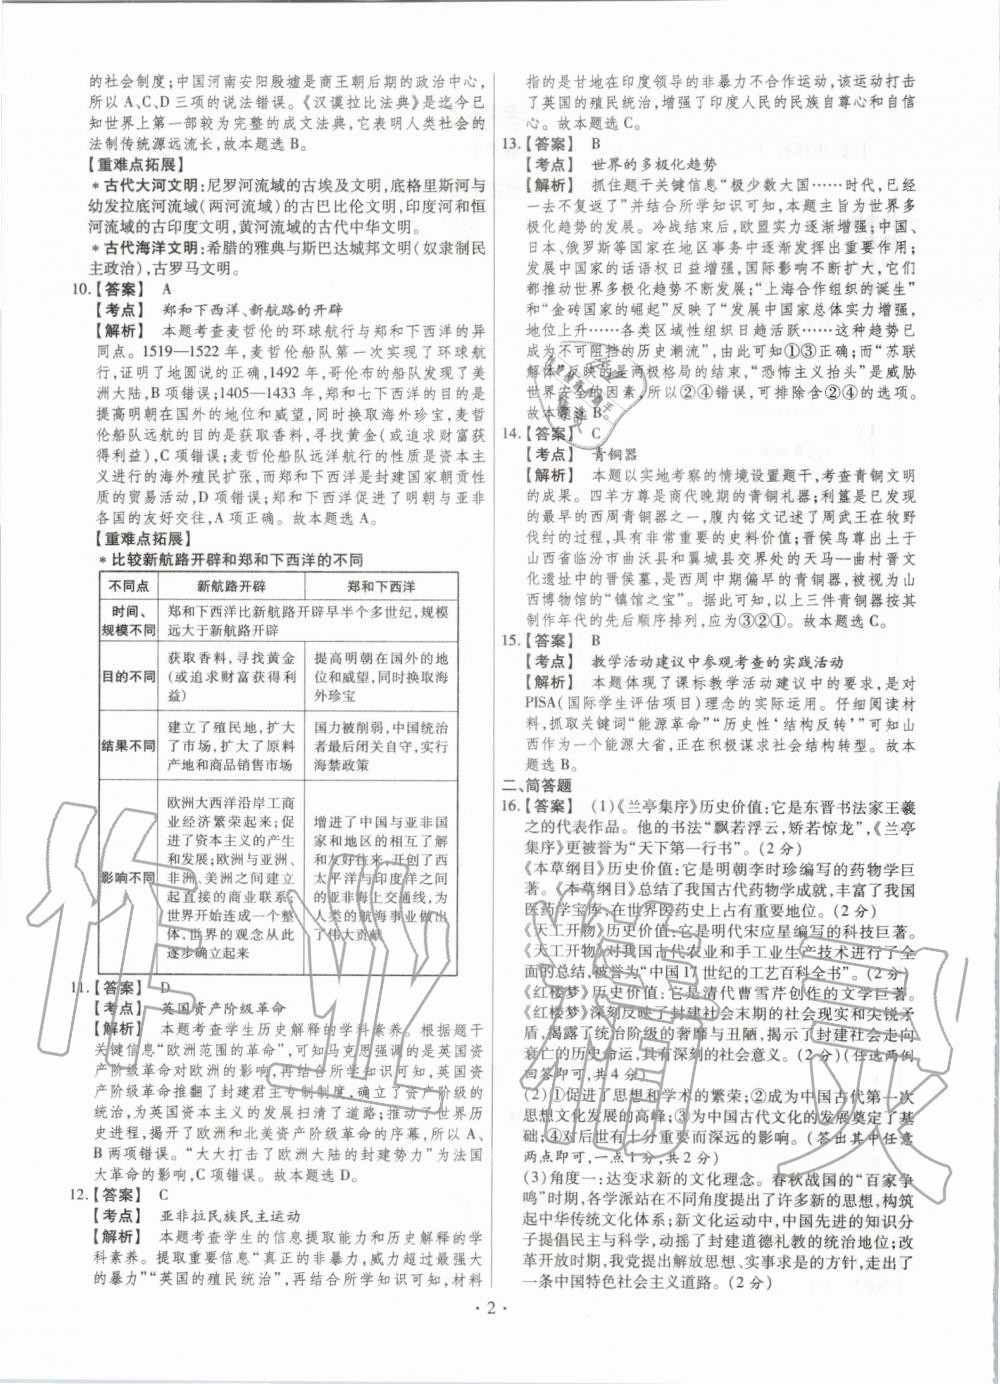 的社会制度;中国河南安阳殷墟是商王朝后期的政治中心,
所以 A、C、D 三项的说法错误。《汉谟拉比法典》是迄今已
知世界上第一部较为完整的成文法典,它表明人类社会的
法制传统源远流长,故本题选 B。
【重难点拓展】
*古代大河文明:尼罗河流域的古埃及文明,底格里斯河与
幼发拉底河流域(两河流域)的古巴比伦文明,印度河和恒
河流域的古印度文明,黄河流域的古代中华文明。
*古代海洋文明:希腊的雅典与斯巴达城邦文明(奴隶制民
主政治),古罗马文明。
10.【答案】 A
【考点】 郑和下西洋、新航路的开辟
【解析】 本题考查麦哲伦的环球航行与郑和下西洋的异
同点。1519—1522 年,麦哲伦船队第一次实现了环球航
行,证明了地圆说的正确,1492 年,哥伦布的船队发现了美
洲大陆,B 项错误;1405—1433 年,郑和下西洋的目的是
提高明朝在国外的地位和威望,同时换取海外珍宝,麦哲
伦船队远航的目的是开辟新航路,寻找黄金(或追求财富获
得利益),C 项错误;麦哲伦船队远洋航行的性质是资本主
义的海外殖民扩张,而郑和下西洋是封建国家朝贡性
质的贸易活动,D 项错误;郑和下西洋促进了明朝与亚非
各国的友好交往,A 项正确。故本题选 A。
【重难点拓展】
*比较新航路开辟和郑和下西洋的不同
不同点 新航路开辟 郑和下西洋
时间、
规模不同
郑和下西洋比新航路开辟早半个多世纪,规模
远大于新航路开辟
目的不同
获取香料,寻找黄金
(或追求财富获得利
益)
提高明朝在国外的地
位和威望,同时换取海
外珍宝
结果不同
建立了殖民地,扩大
了市场,扩大了原料
产地和商品销售市场
国力被削弱,中国统治
者最后闭关自守,实行
海禁政策
影响不同
欧洲大西洋沿岸工商
业经济繁荣起来;促
进了资本主义的产生
和发展;欧洲与亚洲、
非洲、美洲之间建立
起直接的商业联系;
世界开始连成一个整
体,世界的观念从此
逐步确立起来
增进了中国与亚非国
家和地区的相互了解
和友好往来,开创了西
太平洋与印度洋之间
的亚非海上交通线,为
人类的航海事业做出
了伟大贡献
11.【答案】 D
【考点】 英国资产阶级革命
【解析】 本题考查学生历史解释的学科素养。根据题干
关键信息“欧洲范围的革命”,可知马克思强调的是英国资
产阶级革命对欧洲的影响,再结合所学知识可知,英国资
产阶级革命推翻了封建君主专制制度,确立了资产阶级的
统治,为英国资本主义的发展扫清了道路;推动了世界历
史进程,揭开了欧洲和北美资产阶级革命的序幕,所以 A、
B 两项错误。“大大打击了欧洲大陆的封建势力”为法国
大革命的影响,C 项错误。故本题选 D。
12.【答案】 C
【考点】 亚非拉民族民主运动
【解析】 本题考查学生的信息提取能力和历史解释的学
科素养。提取重要信息“真正的非暴力,威力超过最强大
的暴力”“英国的殖民统治”,再结合所学知识可知,材料
指的是甘地在印度领导的非暴力不合作运动,该运动打击
了英国的殖民统治,增强了印度人民的民族自尊心和自信
心。故本题选 C。
13.【答案】 B
【考点】 世界的多极化趋势
【解析】 抓住题干关键信息“极少数大国……时代,已经
一去不复返了”并结合所学知识可知,本题主旨为世界多
极化趋势的发展。冷战结束后,欧盟实力逐渐增强;中国、
日本、俄罗斯等国家在地区事务中逐渐发挥出重要作用;
发展中国家的话语权日益增强,国际影响不断扩大,它们
都推动了世界多极化趋势的发展;“上海合作组织的诞生”
和“金砖国家的崛起”反映了“发展中国家总体实力增强,
地位上升……各类区域性组织日趋活跃……这种趋势已
成为不可阻挡的历史潮流”,由此可知①③正确;而“苏联
解体”反映的是两极格局结束,“恐怖主义抬头”是威胁
世界安全的因素,所以②④错误,可排除含②④的选项。
故本题选 B。
14.【答案】 C
【考点】 青铜器
【解析】 本题以实地考察的情境设置题干,考查青铜文明
的成果。四羊方尊是商代晚期的青铜礼器;利簋是已发现
的最早的西周青铜器之一,腹内铭文记述了周武王在牧野
代纣的历史事件,具有非常重要的史料价值;晋侯鸟尊出土于
山西省临汾市曲沃县和翼城县交界处的天马—曲村晋文
化遗址中的晋侯墓,是西周中期偏早的青铜器,被视为山
西博物馆的“镇馆之宝”。据此可知,以上三件青铜器按其
制作年代的先后顺序排列,应为③②①。故本题选 C。
15.【答案】 B
【考点】 教学活动建议中参观考查的实践活动
【解析】 本题体现了课标教学活动建议中的要求,是对
PISA(国际学生评估项目)理念的实际运用。仔细阅读材
料,抓取关键词“能源革命”“历史性‘结构反转’”可知山
西作为一个能源大省,正在积极谋求社会结构转型。故本
题选 B。
二、简答题
16.【答案】 (1)《兰亭集序》历史价值:它是东晋书法家王羲
之的代表作品。他的书法“飘若浮云,矫若惊龙”,《兰亭
集序》更被誉为“天下第一行书”。(2 分)
《本草纲目》历史价值:它是明朝李时珍编写的药物学巨
著。《本草纲目》总结了我国古代药物学成就,丰富了我国
医药学宝库,在世界医药史上占有重要地位。(2 分)
《天工开物》历史价值:它是明代宋应星编写的科技巨著。
《天工开物》对我国古代农业和手工业生产技术进行了全
面的总结,被誉为“中国 17 世纪的工艺百科全书”。(2 分)
《红楼梦》历史价值:它是清代曹雪芹创作的文学巨著。
《红楼梦》深刻反映了封建社会末期的社会现实和尖锐矛
盾,揭露了统治阶级的奢靡与丑陋,揭示了封建社会走向
衰亡的历史命运,具有深刻的社会意义。(2 分)(任选两例
回答即可,共 4 分)
(2)①促进了思想和学术的繁荣;②成为中国古代第一次
思想文化发展的高峰;③为中国古代文化的发展奠定了基
础;④对后世有十分重要而深远的影响。(答出其中任意
两点即可,一点 1 分,共 2 分)
(3)角度一:达变求新的文化理念。春秋战国的“百家争
鸣”时期,各学派站在不同角度提出了许多新的思想,构筑
起中华传统文化体系;新文化运动中,中国先进的知识分
子提倡民主与科学,动摇了封建道德礼教的统治地位;改
革开放时期,我党提出解放思想、实事求是的方针,走出了
一条中国特色社会主义道路。(2 分)
· 2 ·
作业精灵